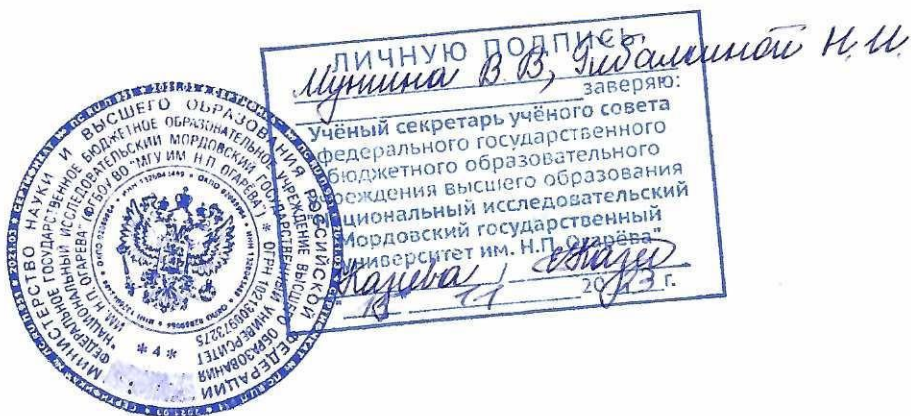 ЛИЧНУЮ ПОДПИСЬ
В.В, Н.И.
заверяю:
Учёный секретарь учёного совета
федерального государственного
бюджетного образовательного
учреждения высшего образования
национальный исследовательский
Мордовский государственный
университет им. Н.П. Огарёва"
13 11 2023 г.
МИНИСТЕРСТВО НАУКИ И ВЫСШЕГО ОБРАЗОВАНИЯ РОССИЙСКОЙ ФЕДЕРАЦИИ
ФЕДЕРАЛЬНОЕ ГОСУДАРСТВЕННОЕ БЮДЖЕТНОЕ ОБРАЗОВАТЕЛЬНОЕ УЧРЕЖДЕНИЕ ВЫСШЕГО ОБРАЗОВАНИЯ
"НАЦИОНАЛЬНЫЙ ИССЛЕДОВАТЕЛЬСКИЙ МОРДОВСКИЙ ГОСУДАРСТВЕННЫЙ УНИВЕРСИТЕТ
ИМ. Н.П. ОГАРЕВА" (ФГБОУ ВО "МГУ ИМ. Н.П. ОГАРЕВА") * ОГРН
* 4 *